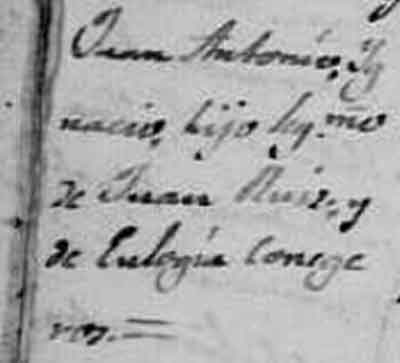 Juan Antonio, Yg
nacio, hijo legmo
de Juan Ruiz, y
de Eulogia Conege
ros.=